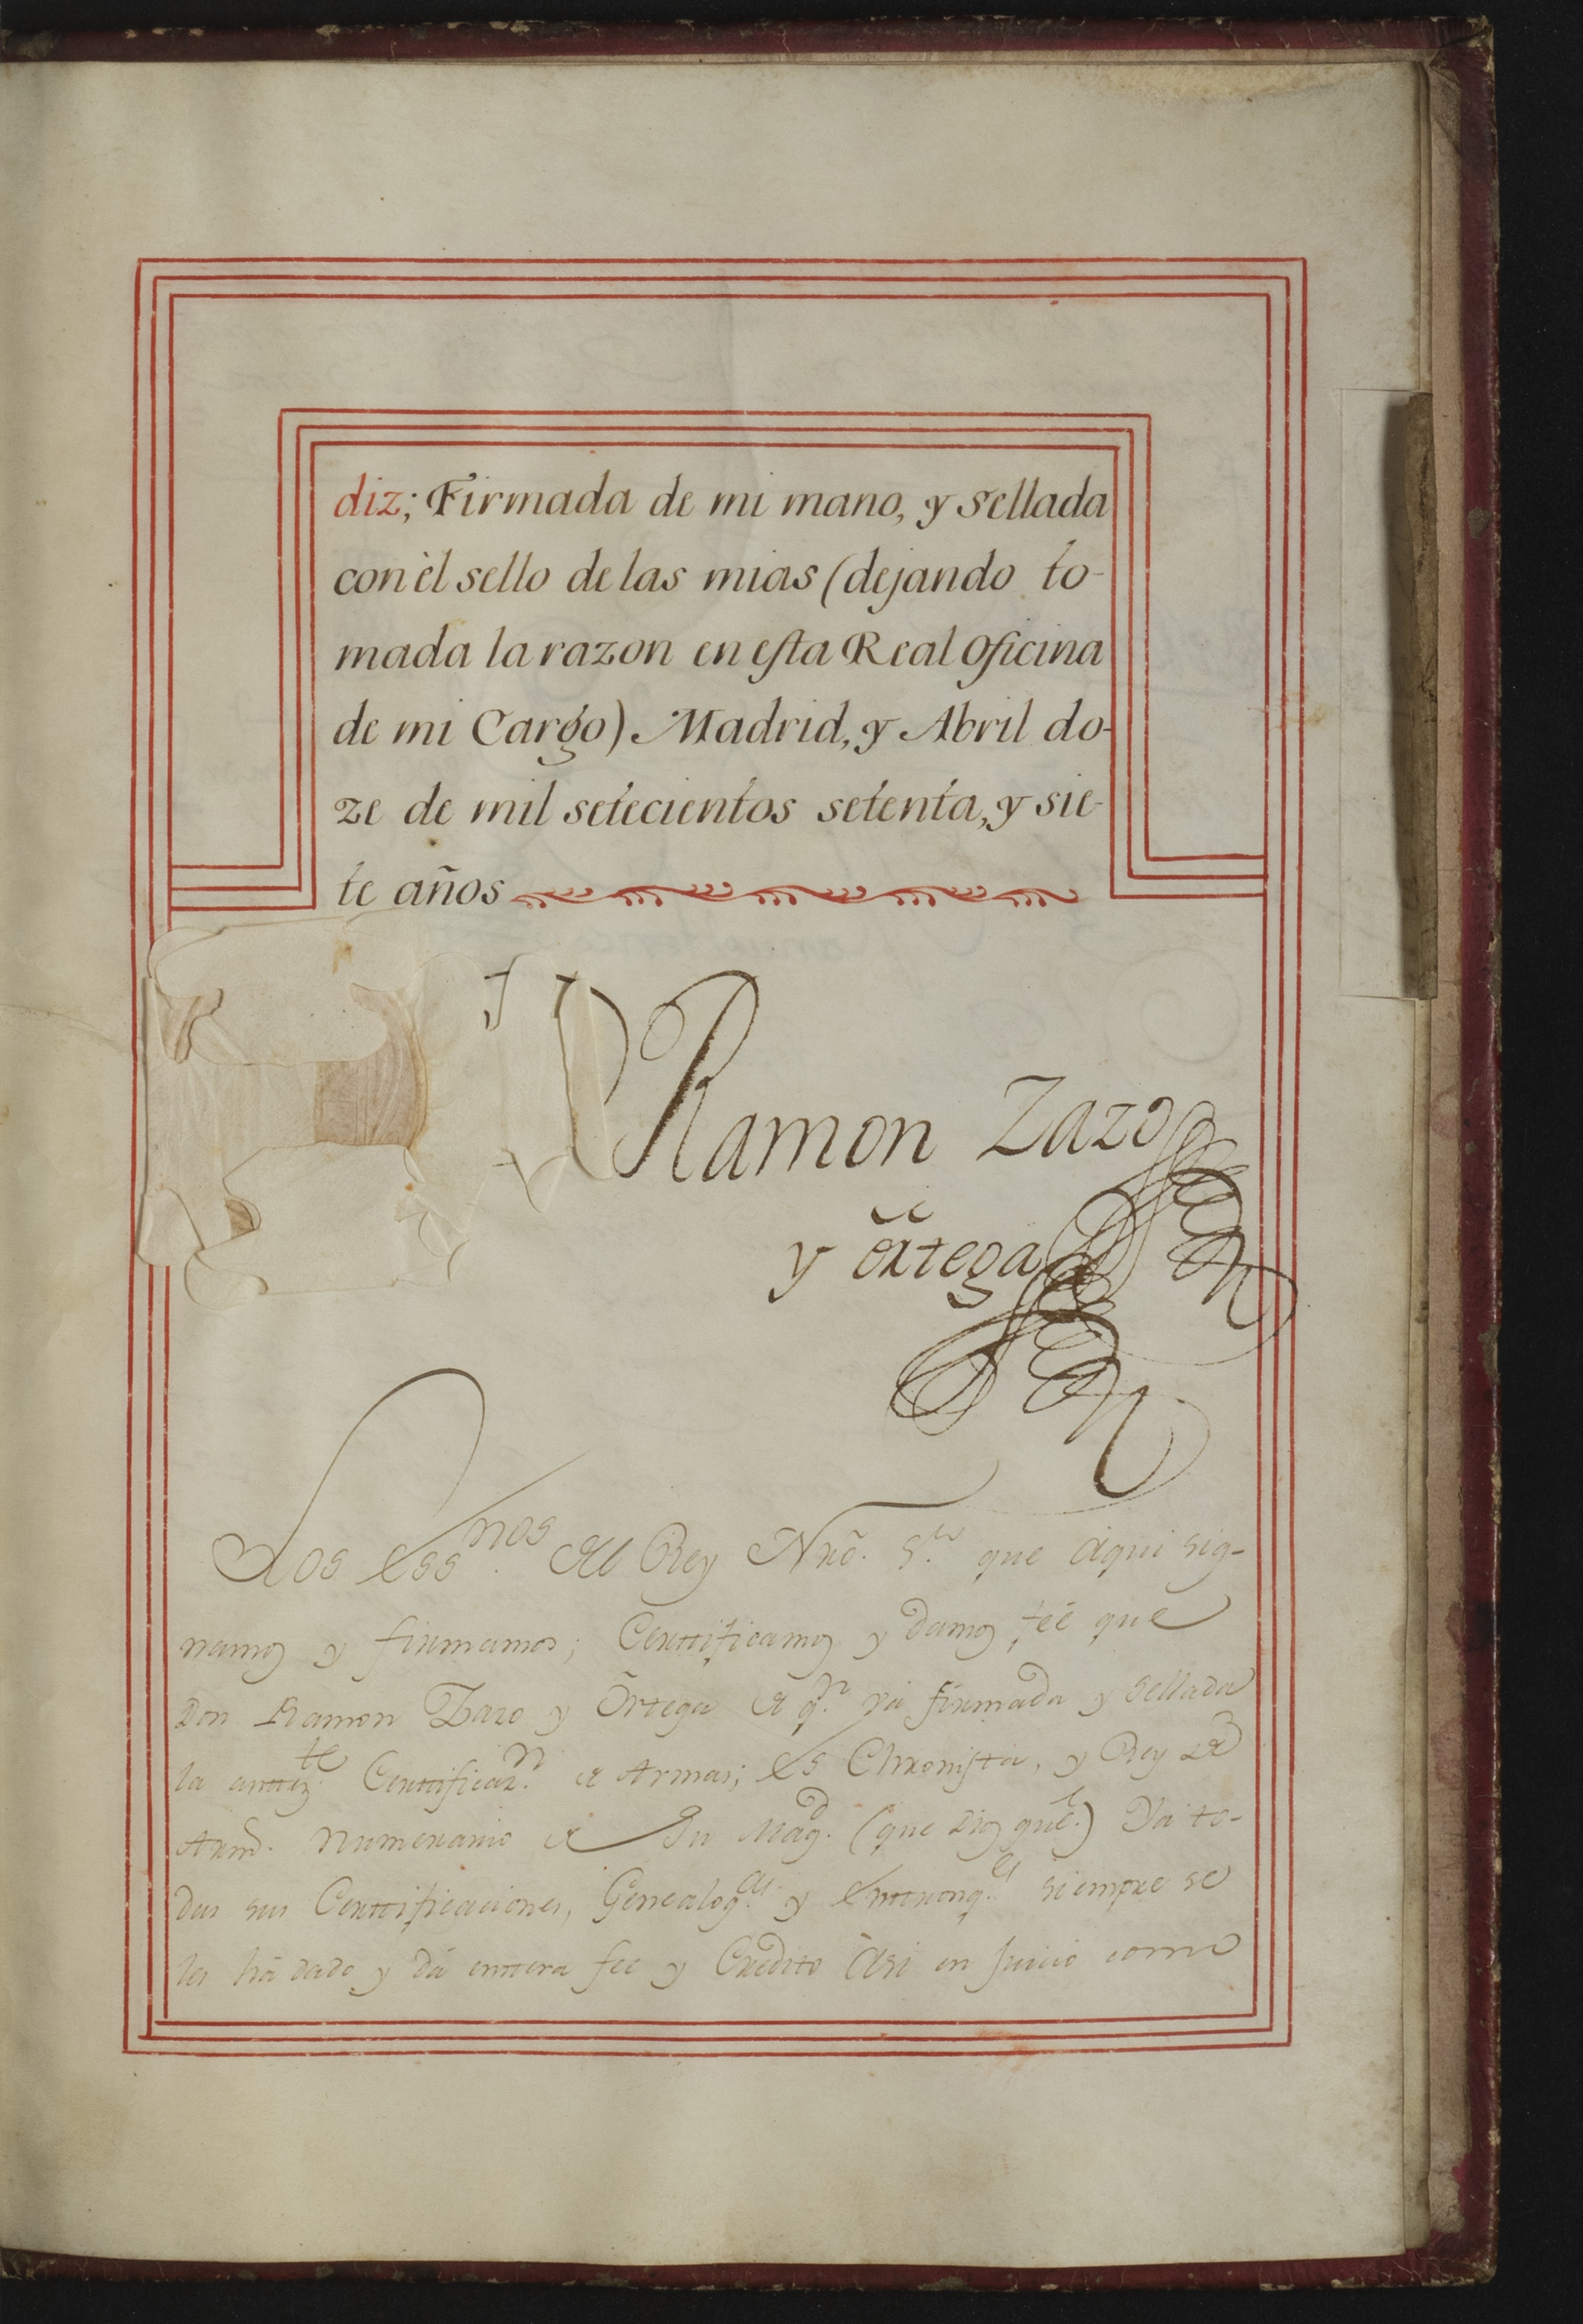 diz; Firmada de mi mano, y sellada
con èl sello de las mias (dejando to-
mada la razon en esta Real Oficina
de mi Cargo) Madrid, y Abril do-
ze de mil setecientos setenta, y sie-
te años
Dn Ramon Zazo
y Ortega
Los Essnos. del Rey Nrõ. Sr. que aqui sig-
namos y firmamos; Certtificamos y damos feé que
Don Ramon Zazo y Ortega de qn. vá firmada y sellada
la anttezte. Certtificazn. de Armas; es Chronista, y Rey de
Arms. Numerario de Su Magd. (que Dios gue.) Ya to-
das sus Certtificaciones, Genealogas. y Enttronqes. siempre se
les há dado y dá enttera fee y Credito asi en Juicio como